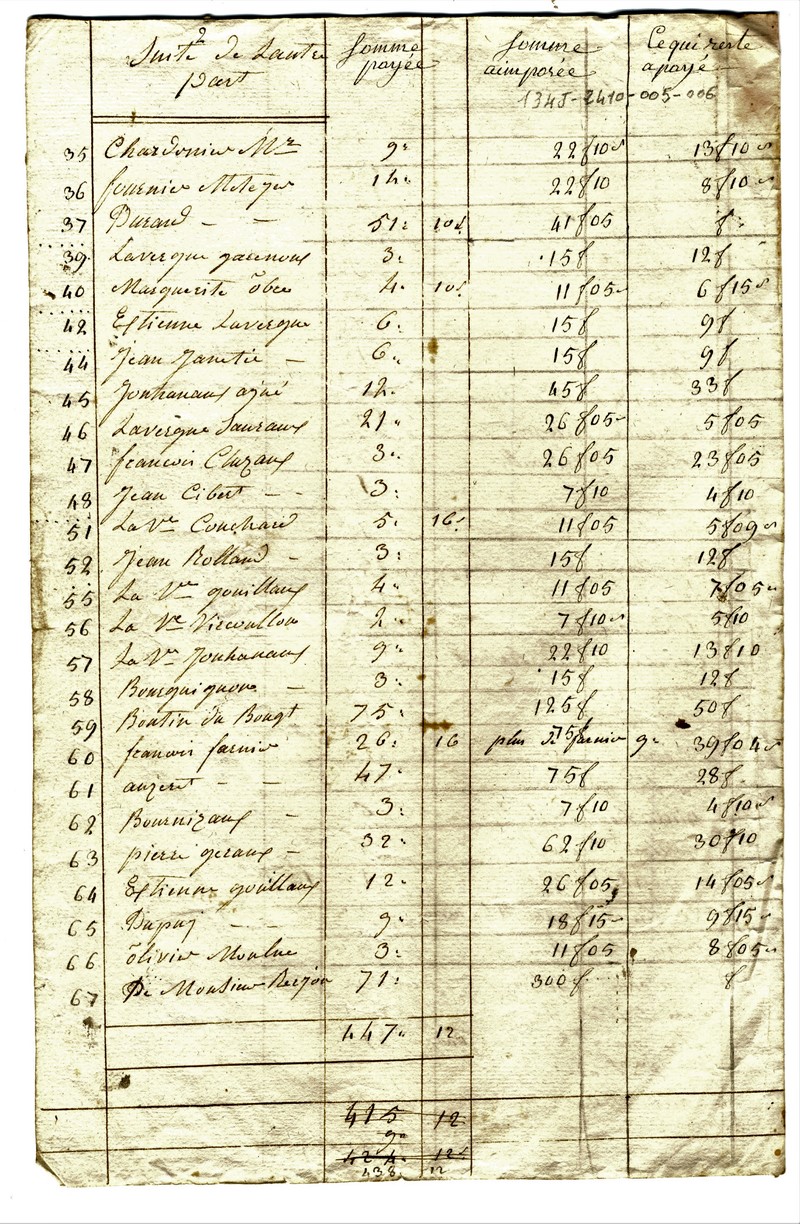 2
Suite de Lautre Somme Somme Ce qui reste
part payée aimposée apayé
134J-2410-005-006
35 Chardonier Mr 9" 22f10s 13f10s
36 fournier Meteyer 14" 22f10 8f10s
37 Durand - - 51" 10s 41f05 f"
39 Lavergne garenoux 3" 15f 12f
40 Marguerite 4" 10s 11f05s 6f15s
42 Estienne Lavergne 6" 15f 9f
44 Jean - 6" 15f 9f
45 Jouhanaux ainé 12" 45f 33f
46 Lavergne 21" 26f05s 5f05
47 francois Cluzaux 3" 26f05 23f05
48 Jean Cibert - - 3" 7f10 4f10
51 La Ve Couchard 5" 16s 11f05 5f09s
52 Jean Rolland - 3" 15f 12f
55 La Ve gouillaux 4" 11f05 7f05s
56 La Ve 2" 7f10s 5f10
57 La Ve Jouhanaux 9" 22f10 13f10
58 Bourguignon - 3" 15f 12f
59 Boutin du Bougt 75" 125f 50f
60 francois farnier 26" 16 75f plus de farnier 9" 39f04s
61 auzeret - - 47" 75f 28f
62 Bournizaux - 3" 7f10 4f10s
63 pierre geraux - 32" 62f10 30f10
64 Estienne gouillaux 12" 26f05 14f05s
65 Dupuy - - 9" 18f15s 9f15s
66 olivier Moulne 3" 11f05 8f05s
67 De Monsieur 71" 300f f
447" 12
415 12
9"
424" 12s
438 12